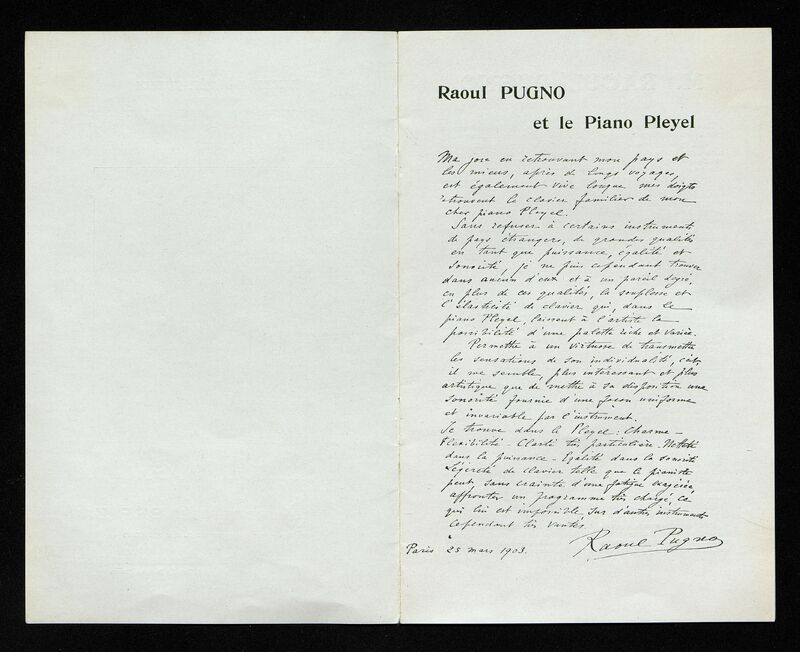 Raoul PUGNO
et le Piano Pleyel
Ma joie en retrouvant mon pays et
les miens, après de longs voyages,
est également vive lorsque mes doigts
retrouvent le clavier familier de mon
cher piano Pleyel.
Sans refuser à certains instruments
de pays étrangers, de grandes qualités
en tant que puissance, égalité et
sonorité, je ne puis cependant trouver
dans aucun d'eux et à un pareil degré,
en plus de ces qualités, la souplesse et
l'élasticité de clavier qui, dans le
piano Pleyel, laissent à l'artiste la
possibilité d'une palette riche et variée.
Permettre à un virtuose de transmettre
les sensations de son individualité, c'est,
il me semble, plus intéressant et plus
artistique que de mettre à sa disposition une
sonorité fournie d'une façon uniforme
et invariable par l'instrument.
Je trouve dans le Pleyel : Charme -
Flexibilité - Clarté très particulière - Netteté
dans la puissance - Egalité dans la sonorité
Légèreté de clavier telle que le pianiste
peut, sans crainte d'une fatigue exagérée,
affronter un programme très chargé, ce
qui lui est impossible sur d'autres instruments
cependant très vantés.
Raoul Pugno
Paris 25 mars 1903.